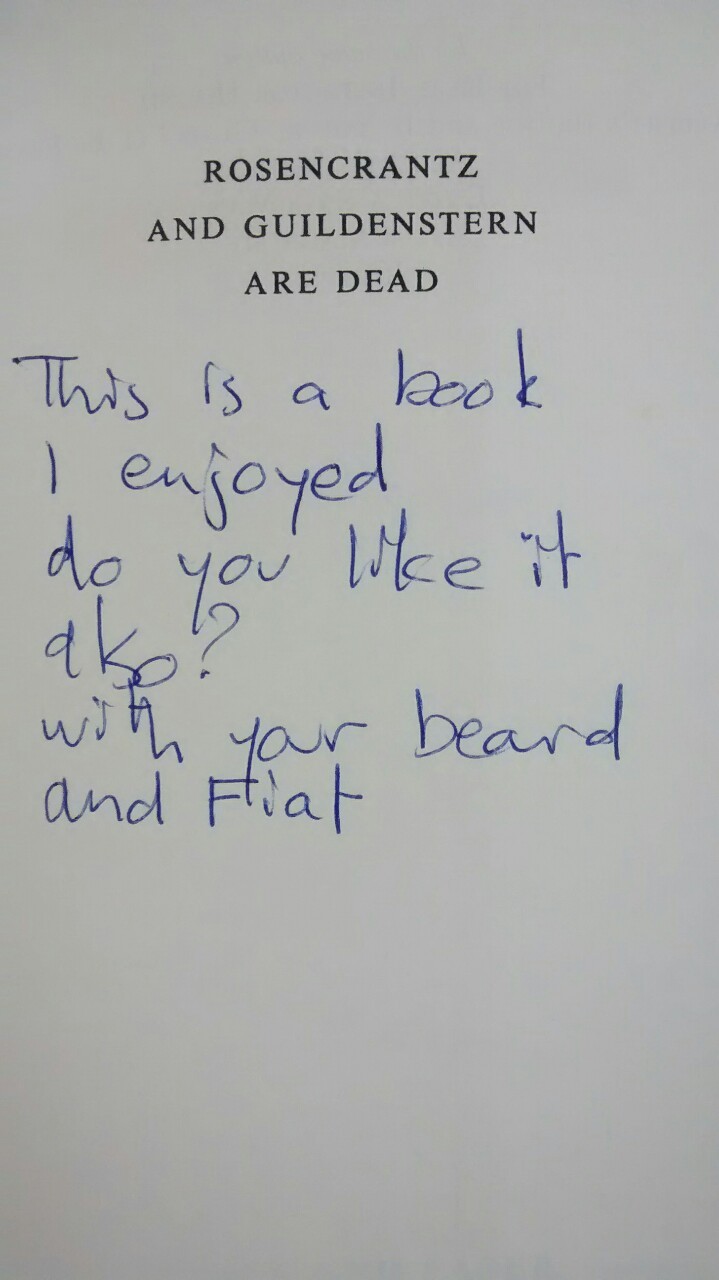 ROSENCRANTZ
AND GUILDENSTERN
ARE DEAD
This is a book
I enjoyed
do you like it
also?
with your beard
and Fiat